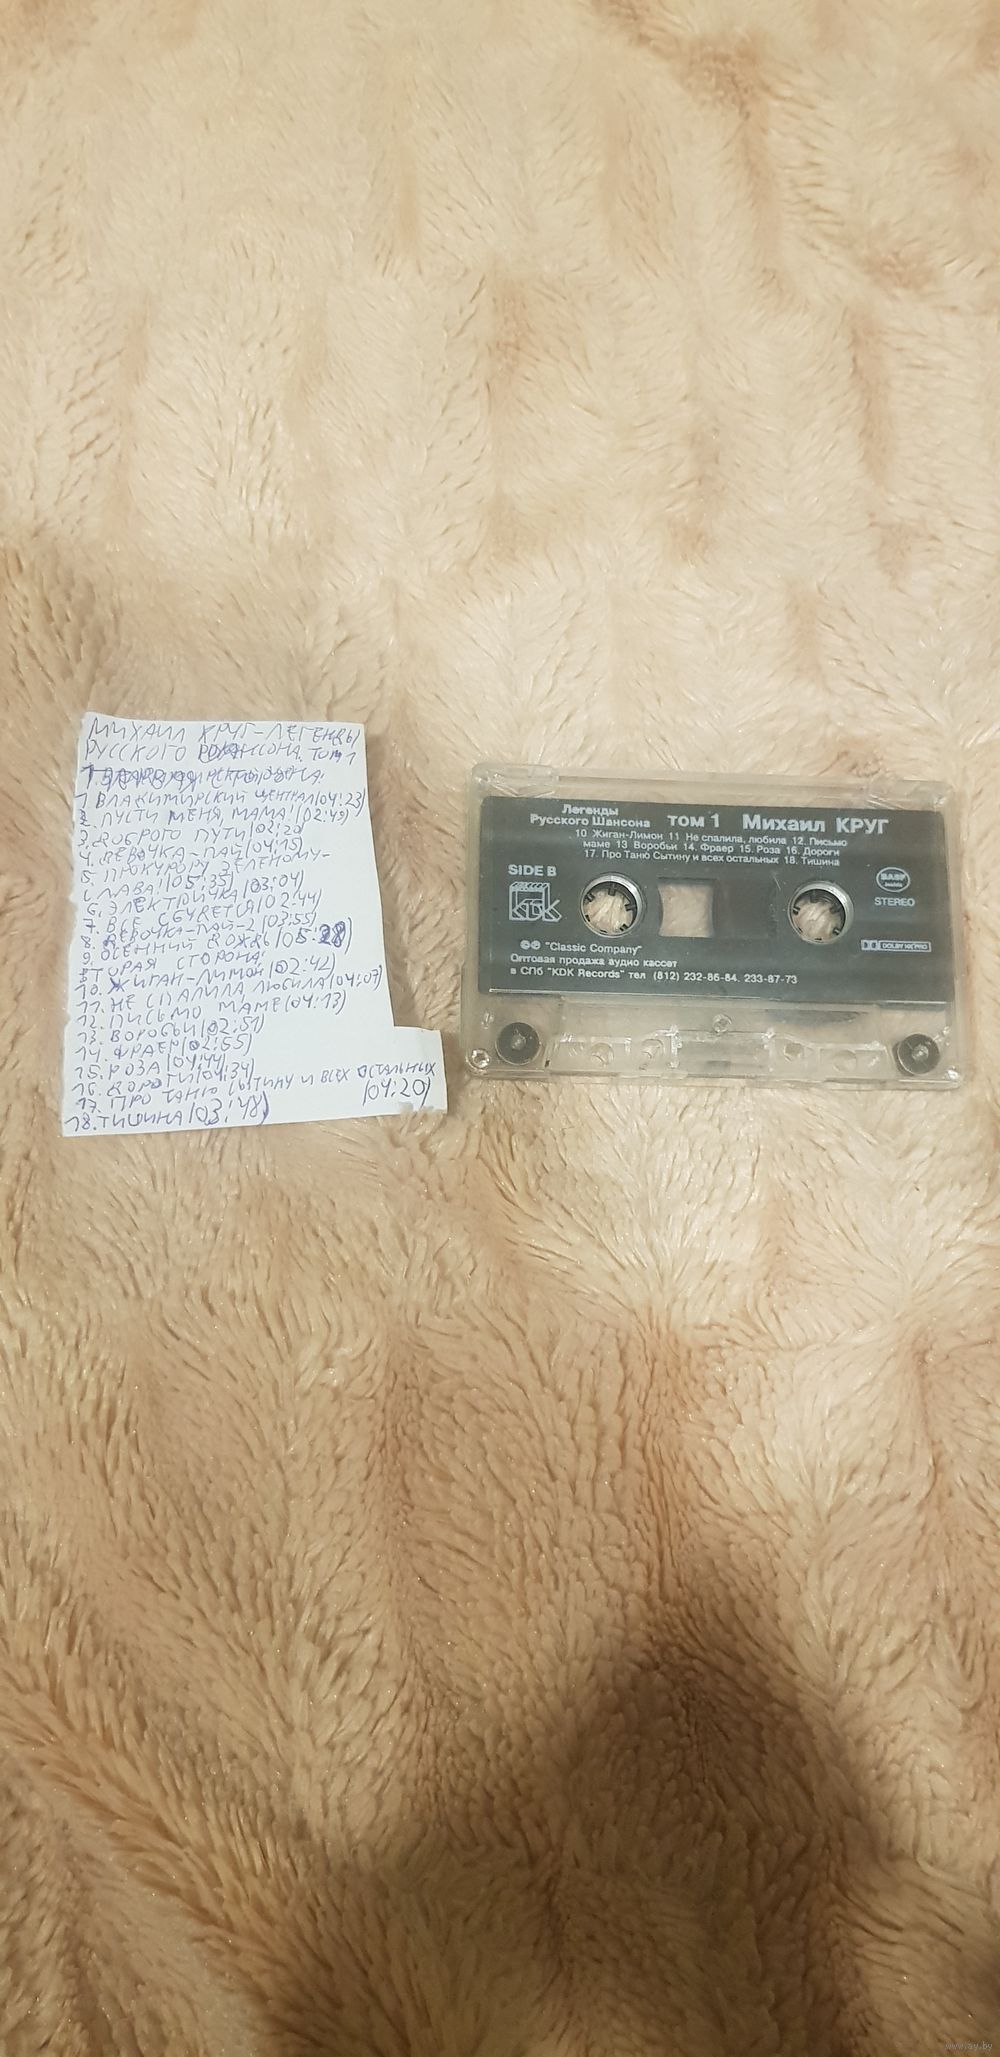 МИХАИЛ КРУГ-ЛЕГЕНДЫ
РУССКОГО ШАНСОНА. ТОМ 1
1. ВЛАДИМИРСКИЙ ЦЕНТРАЛ(04:23)
2. ПУСТИ МЕНЯ, МАМА!(02:49)
3. ДОБРОГО ПУТИ(02:20)
4. ДЕВОЧКА-ПАЙ(04:15)
5. ПРОКУРОРУ ЗЕЛЕНОМУ-
СЛАВА!(05:35)
6. ЭЛЕКТРИЧКА(03:04)
7. ВСЕ СБУДЕТСЯ(02:44)
8. ДЕВОЧКА-ПАЙ-2(03:55)
9. ОСЕННИЙ ДОЖДЬ(05:28)
ВТОРАЯ СТОРОНА:
10. ЖИГАН-ЛИМОН(02:42)
11. НЕ СПАЛИЛА ЛЮБИЛА(04:07)
12. ПИСЬМО МАМЕ(04:13)
13. ВОРОБЬИ(02:51)
14. ФРАЕР(02:55)
15. РОЗА(04:44)
16. ДОРОГИ(04:34)
17. ПРО ТАНЮ СЫТИНУ И ВСЕХ ОСТАЛЬНЫХ
(04:20)
18. ТИШИНА(03:48)
Легенды
Русского Шансона том 1 Михаил КРУГ
10 Жиган-Лимон 11 Не спалила, любила 12. Письмо
маме 13 Воробьи 14. Фраер 15. Роза 16. Дороги
17. Про Таню Сытину и всех остальных 18. Тишина
SIDE B
KDK
BASF
inside
STEREO
"Classic Company"
DOLBY HX PRO
Оптовая продажа аудио кассет
в СПб "KDK Records" тел (812) 232-86-84. 233-87-73
www.ay.by